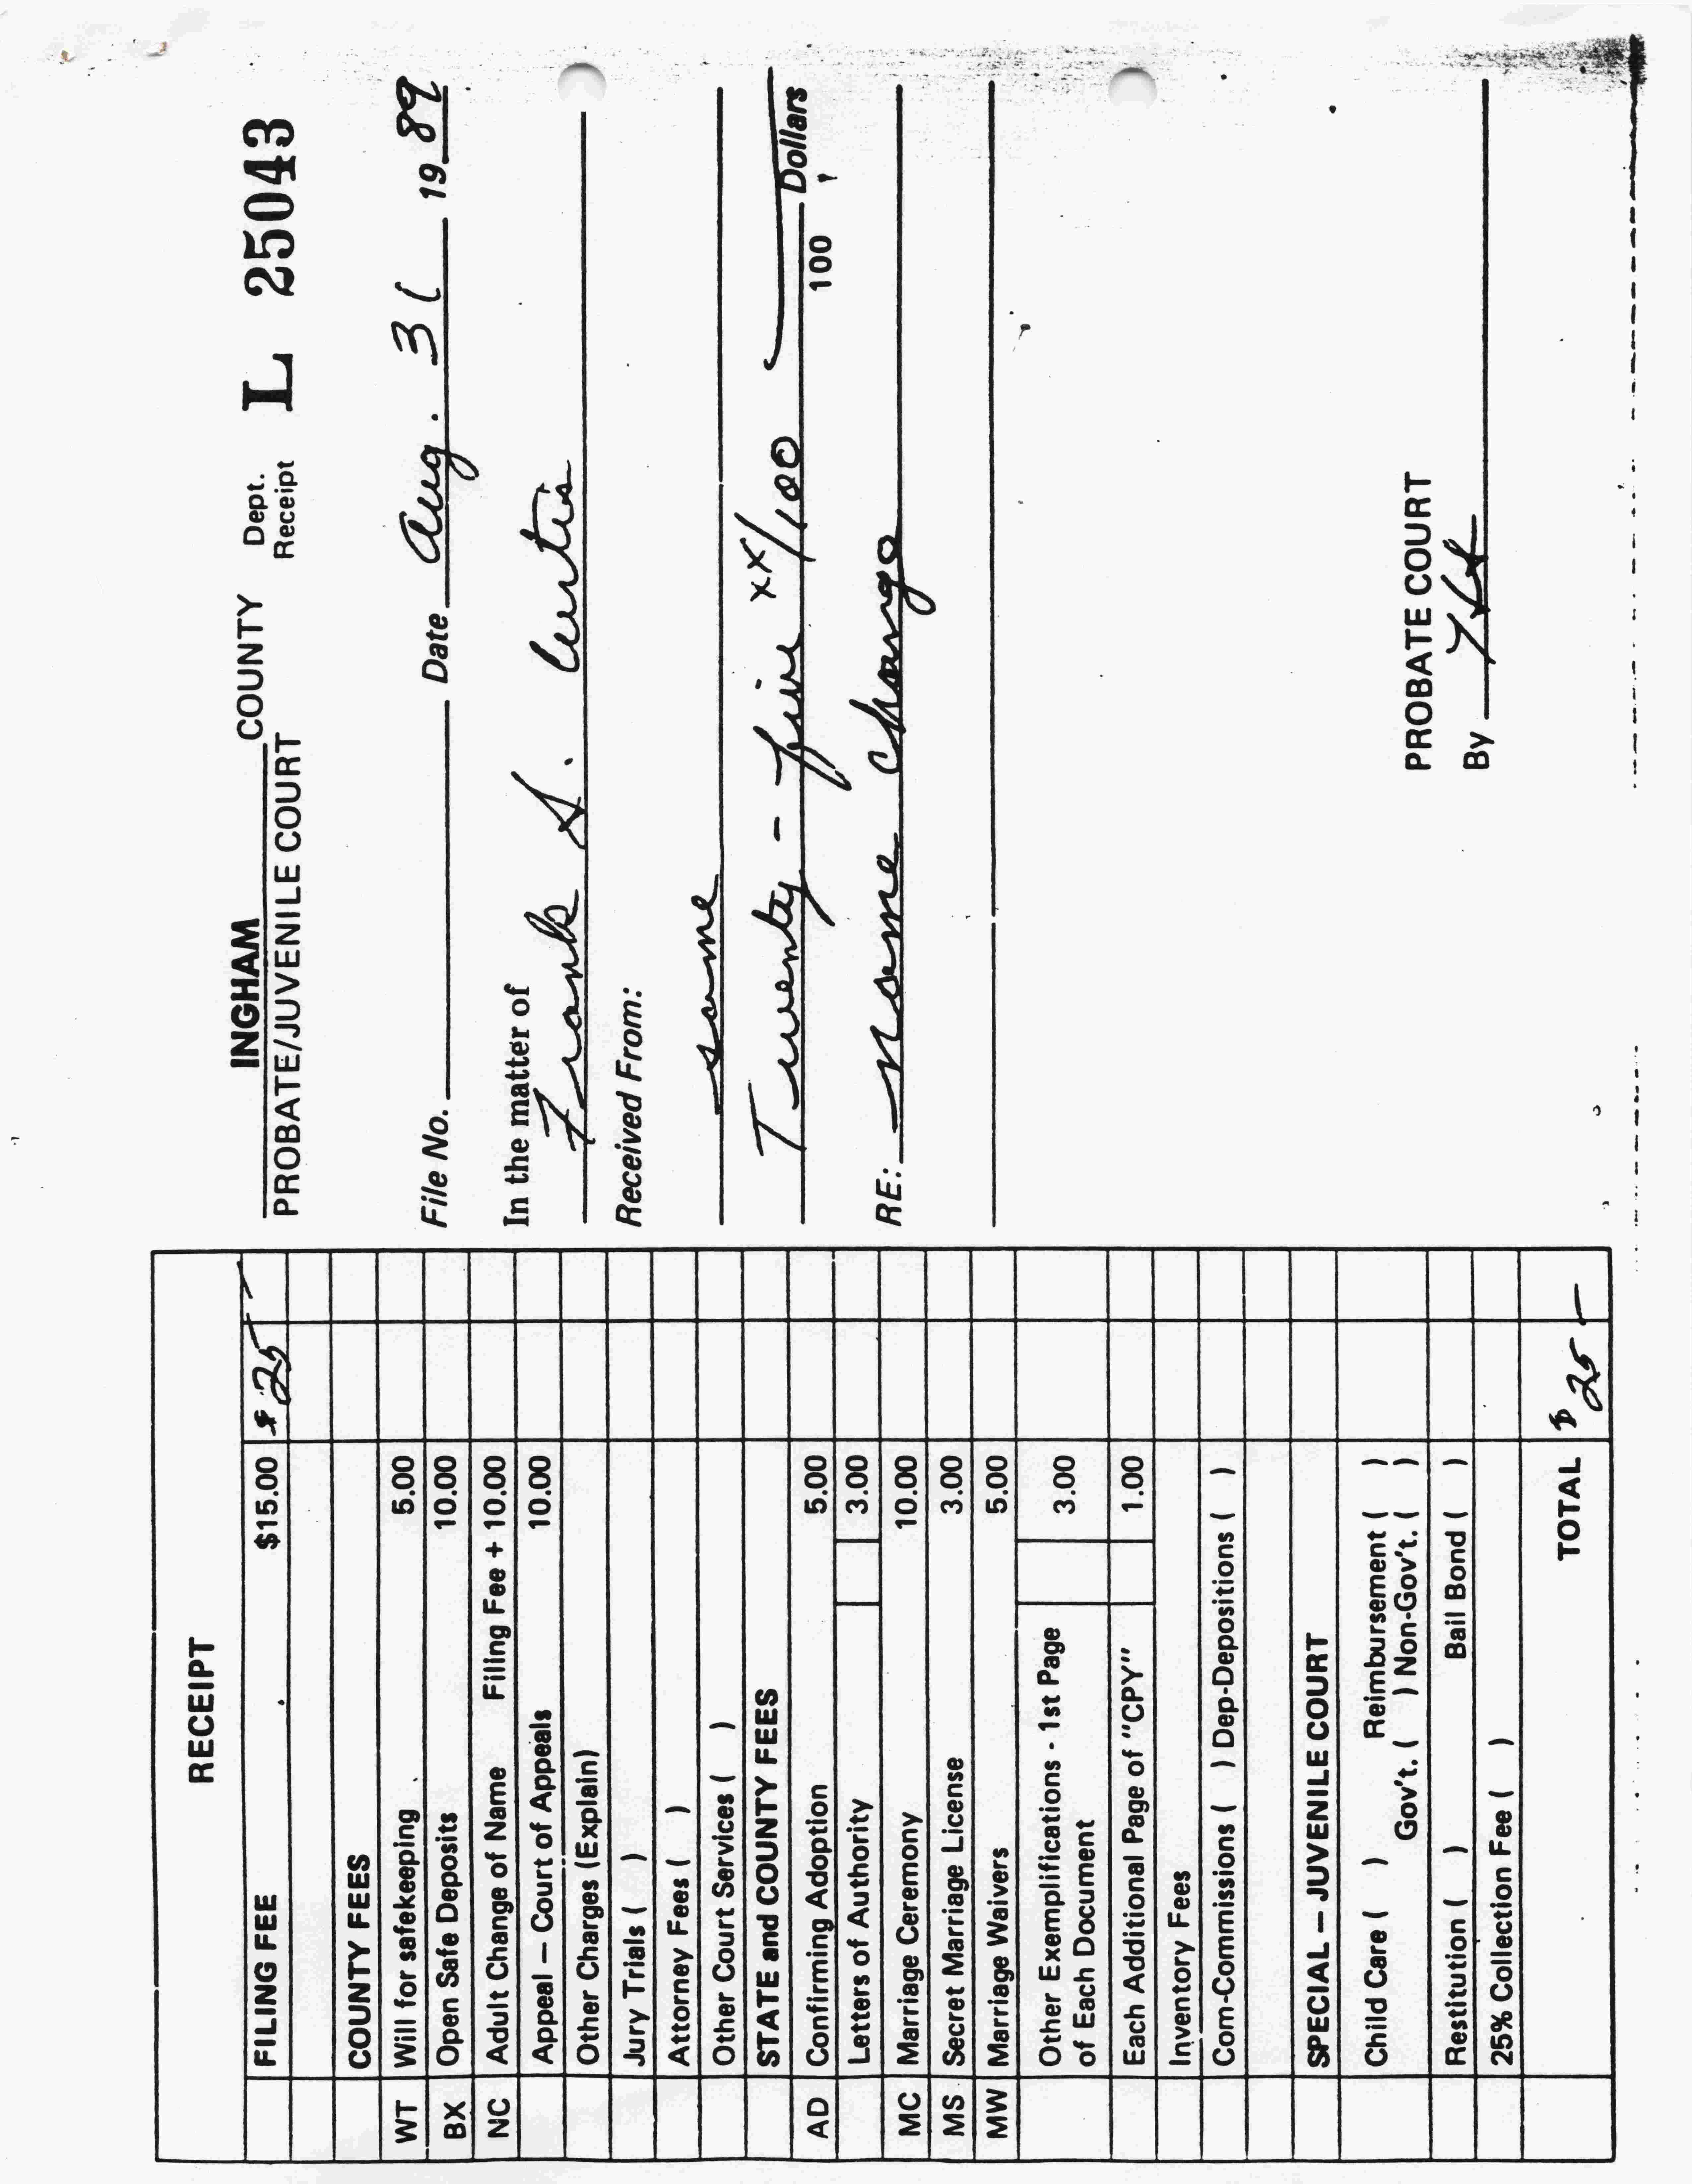 RECEIPT
FILING FEE $15.00 $ 25 —
COUNTY FEES
WT Will for safekeeping 5.00
BX Open Safe Deposits 10.00
NC Adult Change of Name Filing Fee + 10.00
Appeal — Court of Appeals 10.00
Other Charges (Explain)
Jury Trials ( )
Attorney Fees ( )
Other Court Services ( )
STATE and COUNTY FEES
AD Confirming Adoption 5.00
Letters of Authority 3.00
MC Marriage Ceremony 10.00
MS Secret Marriage License 3.00
MW Marriage Waivers 5.00
Other Exemplifications - 1st Page
of Each Document 3.00
Each Additional Page of "CPY" 1.00
Inventory Fees
Com-Commissions ( ) Dep-Depositions ( )
SPECIAL — JUVENILE COURT
Child Care ( ) Reimbursement ( )
Gov't. ( ) Non-Gov't. ( )
Restitution ( ) Bail Bond ( )
25% Collection Fee ( )
TOTAL $ 25 —
INGHAM COUNTY Dept. Receipt L 25043
PROBATE/JUVENILE COURT
File No. Date Aug. 31 19 89
In the matter of
Frank S. Curtis
Received From:
same
Twenty - five xx/100 Dollars
100
RE: Name Change
PROBATE COURT
By